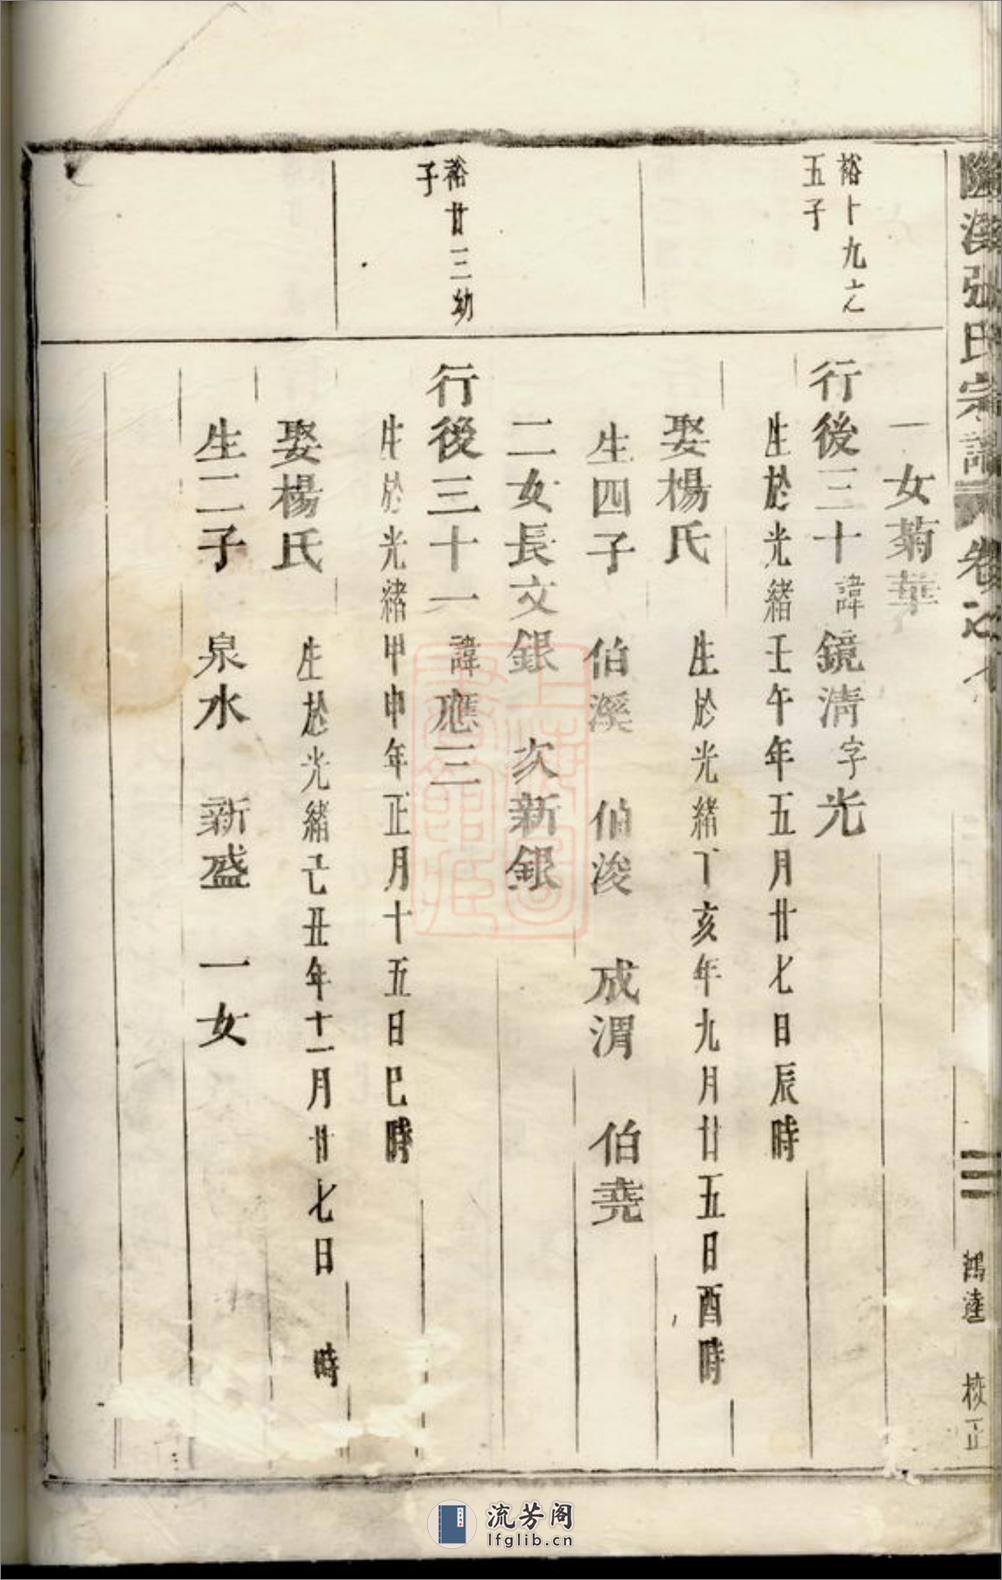 張氏宗譜 卷之
鴻逵 校正
一女菊華
裕十九之
五子
行後三十 諱鏡清 字光
生於光緒壬午年五月廿七日辰時
娶楊氏 生於光緒丁亥年九月廿五日酉時
生四子 伯溪 伯浚 成渭 伯堯
二女長文銀 次新銀
裕廿三幼
子
行後三十一 諱應三
生於光緒甲申年正月十五日巳時
娶楊氏 生於光緒己丑年十一月廿七日 時
生二子 泉水 新盛 一女
上海圖書館藏
流芳阁
lfglib.cn